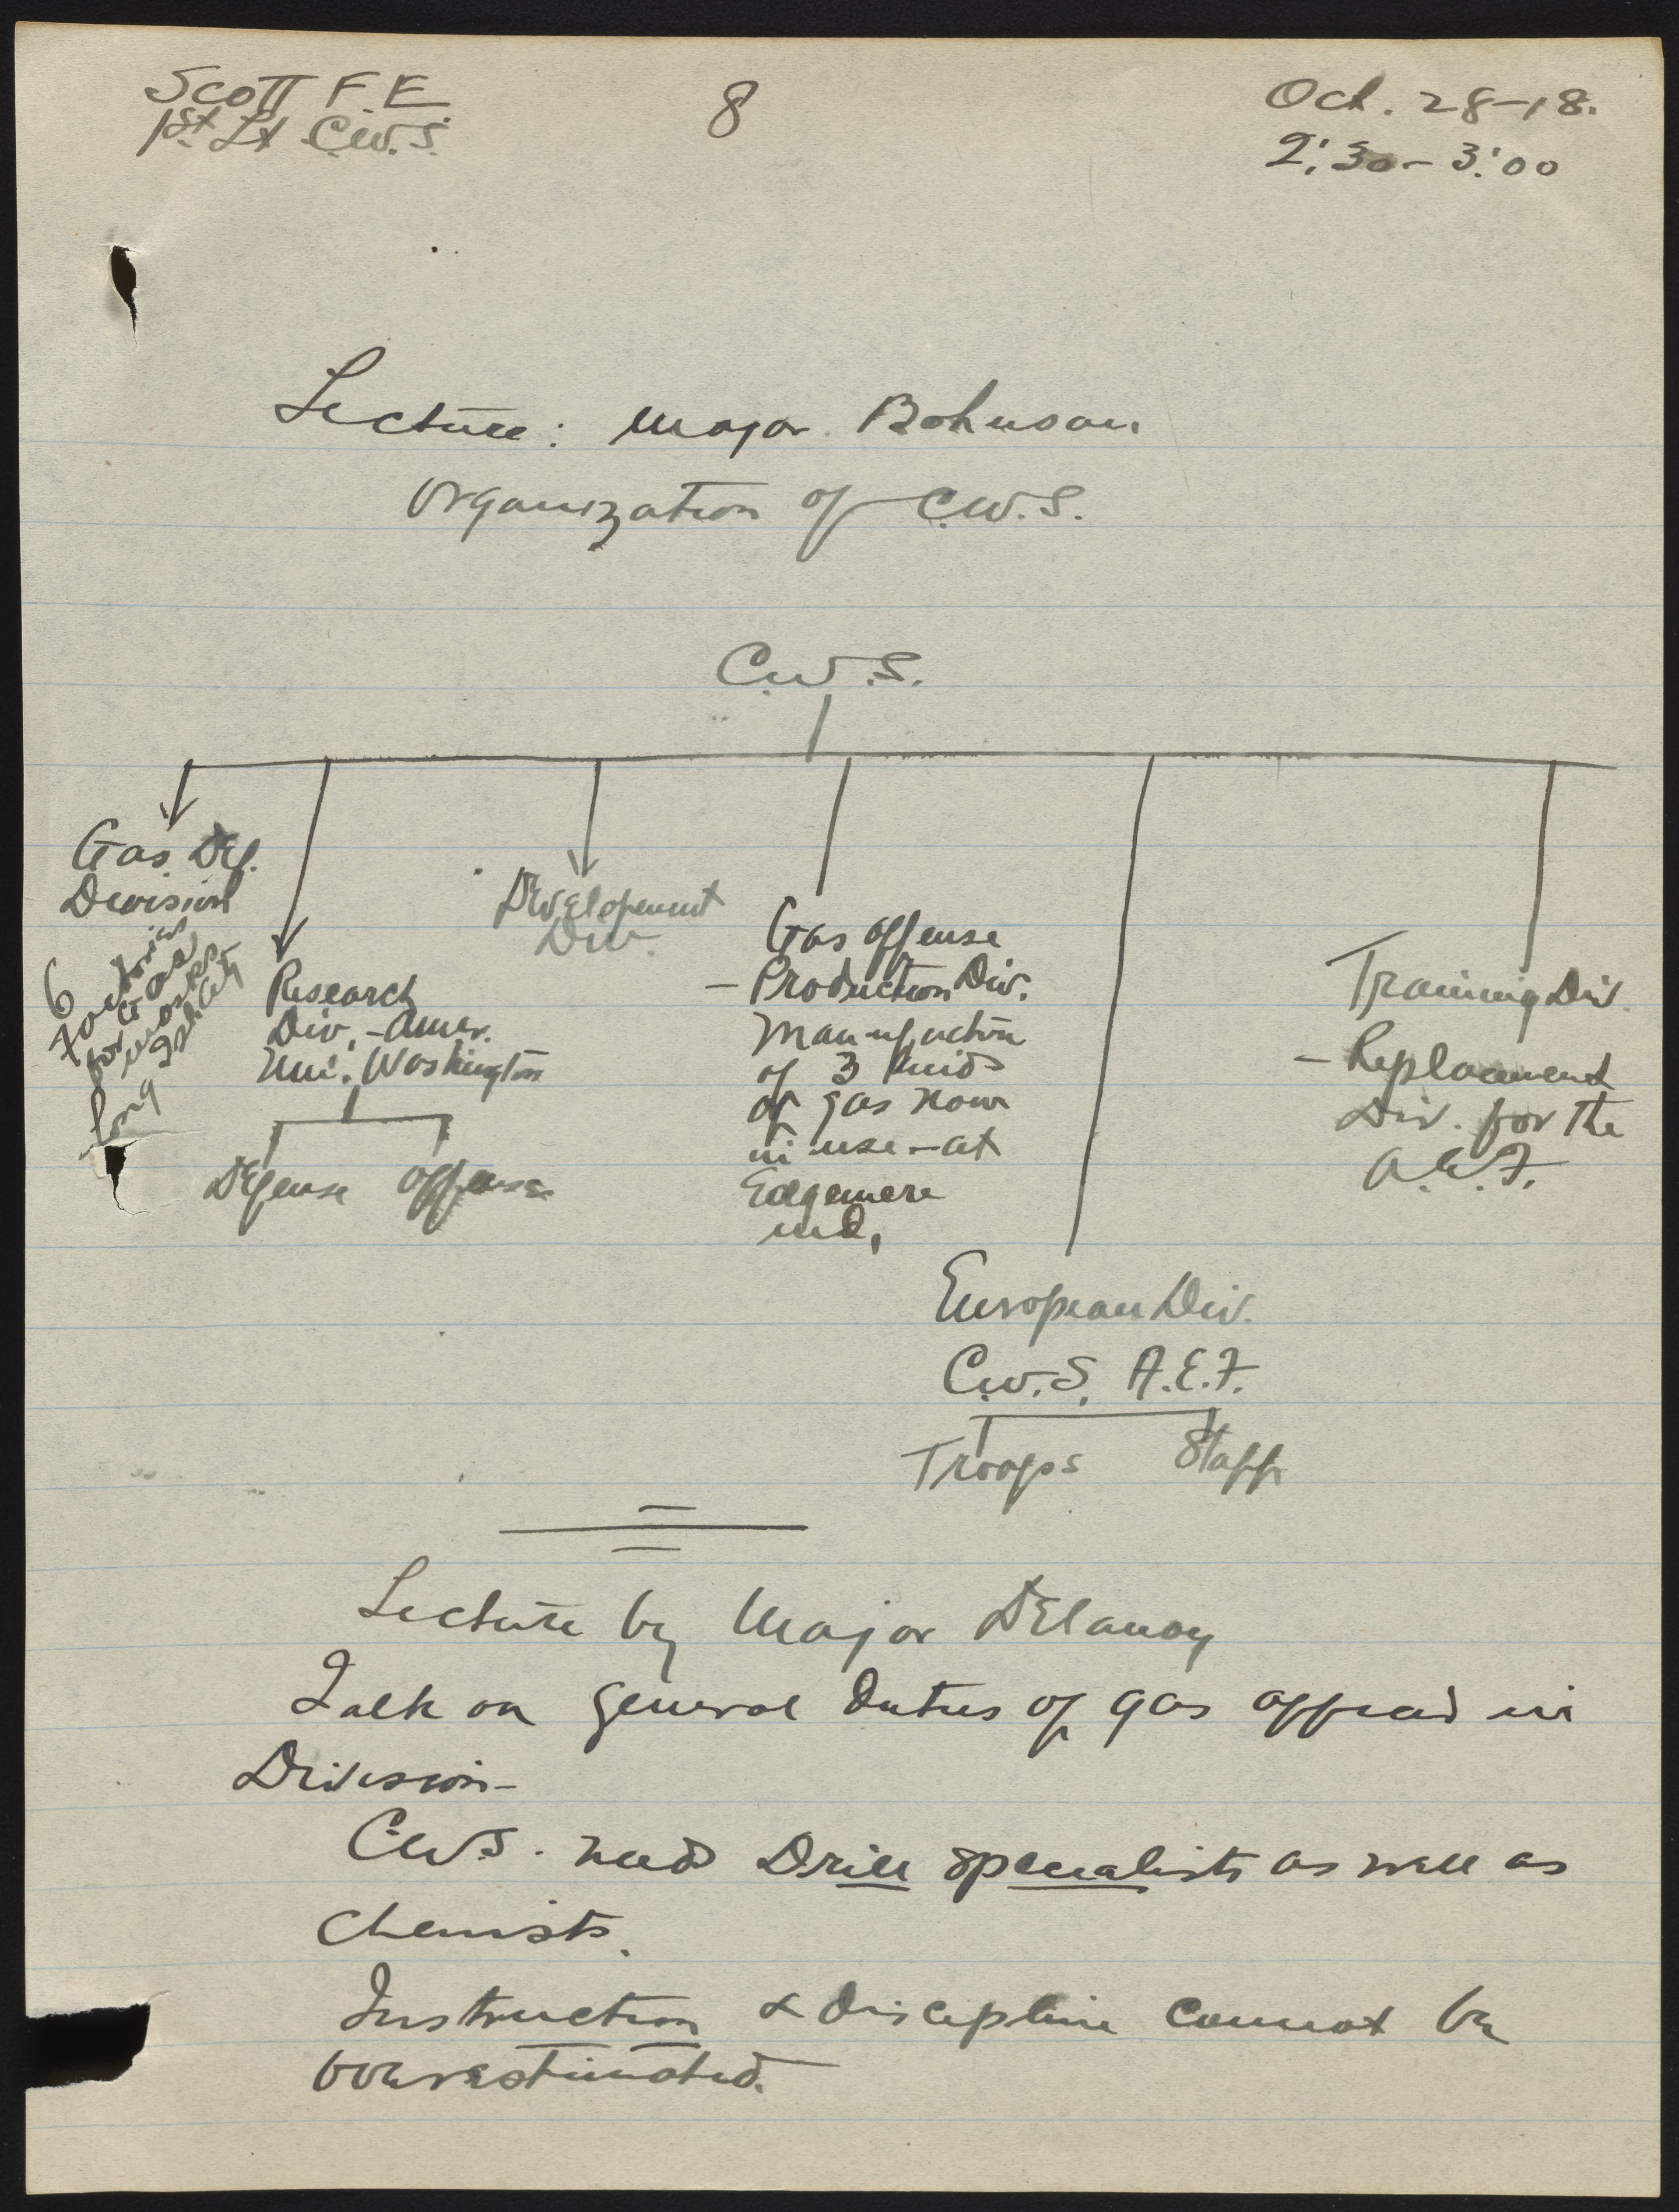 Scott F.E.
1st Lt C.W.S.
8
Oct. 28-18.
2:30 - 3:00
Lecture: Major Bohnson
Organization of C.W.S.
C.W.S.
Gas Def.
Division
6
factories
for Gas
masks
Long Is. City
Research
Div. - Amer.
Uni. Washington
Defense Offense
Developement
Div.
Gas Offense
- Production Div.
Manufacture
of 3 kinds
of gas now
in use - at
Edgemere
Md,
European Div.
C.W.S. A.E.F.
Troops Staff
Training Div.
- Replacement
Div. for the
A.E.F.
Lecture by Major Delanoy
Talk on general duties of gas officer in
Division -
C.W.S. need Drill specialists as well as
chemists.
Instruction & Discipline cannot be
overestimated.